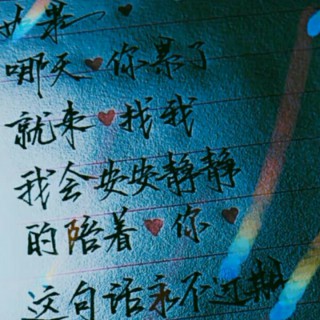 如果
哪天你累了
就来找我
我会安安静静
的陪着你
这句话永不过期